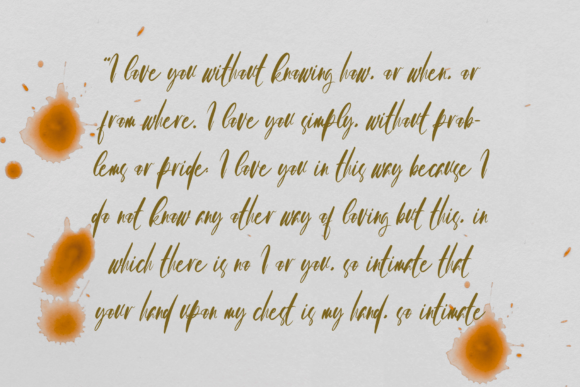 "I love you without knowing how, or when, or
from where. I love you simply, without prob-
lems or pride: I love you in this way because I
do not know any other way of loving but this, in
which there is no I or you, so intimate that
your hand upon my chest is my hand, so intimate